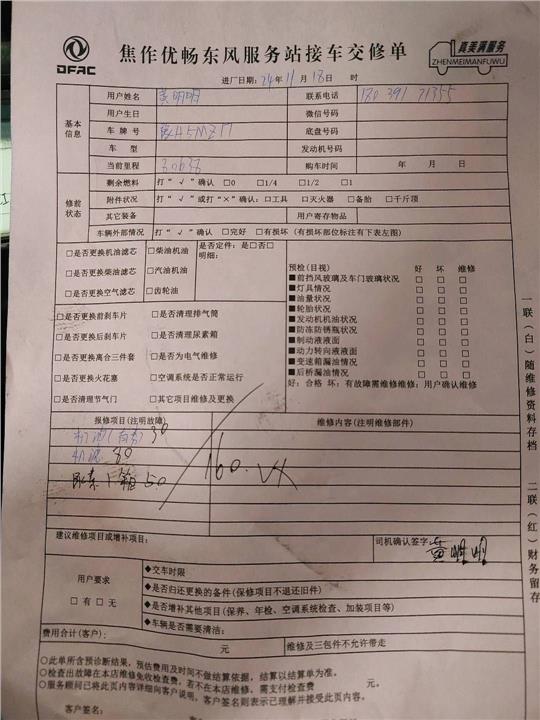 DFAC
焦作优畅东风服务站接车交修单
真美满服务
ZHENMEIMANFUWU
进厂日期:24年11月18日 时
基本信息
用户姓名 黄明明 联系电话
用户生日 微信号码
车牌号 底盘号码
车 型 发动机号码
当前里程 购车时间 年 月 日
修前状态
剩余燃料 打“√”确认 □0 □1/4 □1/2 □1
附件状况 打“√”或打“×”确认:□工具 □灭火器 □备胎 □千斤顶
其它装备 用户寄存物品
车辆外部情况 打“√”确认 □完好 □有损坏 (有损坏部位标注有下表左图)
□是否更换机油滤芯 □柴油机油
□是否更换柴油滤芯 □汽油机油
□是否更换空气滤芯 □齿轮油
是否定件:是□否□
明细:
□是否更换前刹车片 □是否清理排气筒
□是否更换后刹车片 □是否清理尿素箱
□是否更换离合三件套 □是否为电气维修
□是否更换火花塞 □空调系统是否正常运行
□是否清理节气门 □其它项目维修及更换
预检(目视) 好 坏 维修
■前挡风玻璃及车门玻璃状况 □ □ □
■灯具情况 □ □ □
■油量状况 □ □ □
■轮胎状况 □ □ □
■发动机机油状况 □ □ □
■防冻防锈瓶状况 □ □ □
■制动液液面 □ □ □
■动力转向液液面 □ □ □
■变速箱漏油情况 □ □ □
■后桥漏油情况 □ □ □
好:合格 坏:有故障需维修维修:用户确认维修
报修项目(注明故障) 维修内容(注明维修部件)
30
机滤 80
尿素 50
160.
建议维修项目或增补项目:
司机确认签字:黄明明
用户要求
□有 □无
◆交车时限
◆是否归还更换的备件(保修项目不退还旧件)
◆是否增补其他项目(保养、年检、空调系统检查、加装项目等)
◆车辆是否需要清洁:
费用合计(客户): 元 维修及三包件不允许带走
○此单所含预诊断结果,预估费用及时间不做结算依据,结算以结算单为准。
○检查出故障在本店维修免收检查费,若不在本店维修,需支付检查费 元。
○服务顾问已将此页内容详细向客户说明,客户签名则表示已理解并接受此页内容。
客户签名:
一联(白)随维修资料存档
二联(红)财务留存